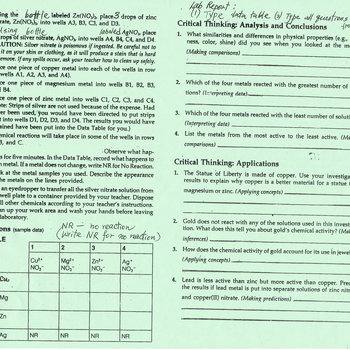 ing the bottle, labeled Zn(NO₃)₂, place 3 drops of zinc
rate, Zn(NO₃)₂, into wells A3, B3, C3, and D3.
sing bottle labeled AgNO₃, place
rops of silver nitrate, AgNO₃, into wells A4, B4, C4, and D4.
UTION: Silver nitrate is poisonous if ingested. Be careful not to
it on your skin or clothing, as it will produce a stain that is hard
emove. If any spills occur, ask your teacher how to clean up safely.
ce one piece of copper metal into each of the wells in row
wells A1, A2, A3, and A4).
ce one piece of magnesium metal into wells B1, B2, B3,
B4.
ce one piece of zinc metal into wells C1, C2, C3, and C4.
te: Strips of silver are not used because of the expense. Had
er been used, you would have been directed to put strips
into wells D1, D2, D3, and D4. The results you would have
ained have been put into the Data Table for you.)
hemical reactions will take place in some of the wells in rows
B, and C.
Observe what hap-
s for five minutes. In the Data Table, record what happens to
metal. If a metal does not change, write NR for No Reaction.
k at the metal samples you used. Describe the appearance
he metals on the lines provided.
an eyedropper to transfer all the silver nitrate solution from
well plate to a container provided by your teacher. Dispose
ll other chemicals according to your teacher's instructions.
an up your work area and wash your hands before leaving
laboratory.
NR - no reaction
ons (sample data) (write NR for no reaction)
LE
1 2 3 4
Cu²⁺ Mg²⁺ Zn²⁺ Ag⁺
NO₃⁻ NO₃⁻ NO₃⁻ NO₃⁻
Cu
Mg
Zn
Ag NR NR NR NR
Lab Report:
(1) Type data table (2) Type all questions
Critical Thinking: Analysis and Conclusions
1. What similarities and differences in physical properties (e.g.,
ness, color, shine) did you see when you looked at the m
(Making comparisons)
2. Which of the four metals reacted with the greatest number of
tions? (Interpreting data)
3. Which of the four metals reacted with the least number of solut
(Interpreting data)
4. List the metals from the most active to the least active. (Ma
comparisons)
Critical Thinking: Applications
1. The Statue of Liberty is made of copper. Use your investiga
results to explain why copper is a better material for a statue
magnesium or zinc. (Applying concepts)
2. Gold does not react with any of the solutions used in this invest
tion. What does this tell you about gold's chemical activity? (Mak
inferences)
3. How does the chemical activity of gold account for its use in jewel
(Applying concepts)
4. Lead is less active than zinc but more active than copper. Pred
the results if lead metal is put into separate solutions of zinc nit
and copper(II) nitrate. (Making predictions)